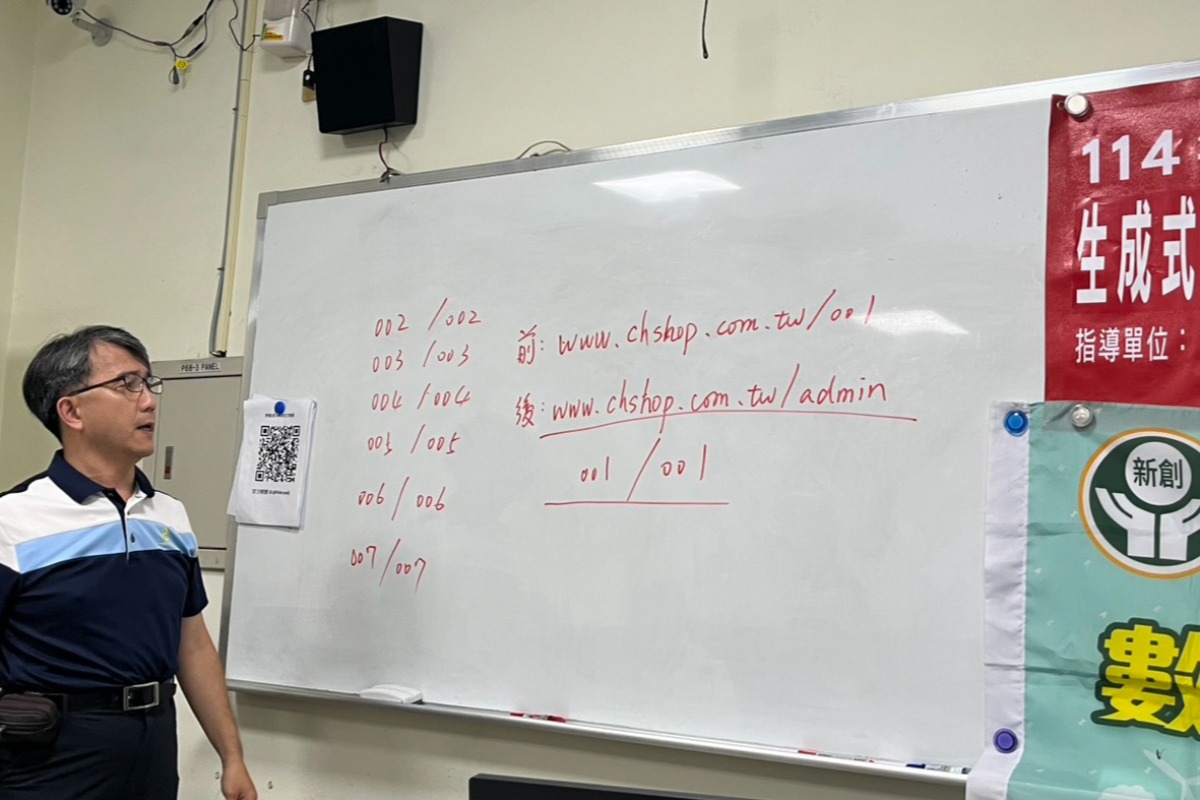 P6B-3 PANEL
002 /002
003 /003
004 /004
005 /005
006 / 006
007 / 007
前: www.chshop.com.tw/001
後: www.chshop.com.tw/admin
001 / 001
114
生成式
指導單位：
新創
數